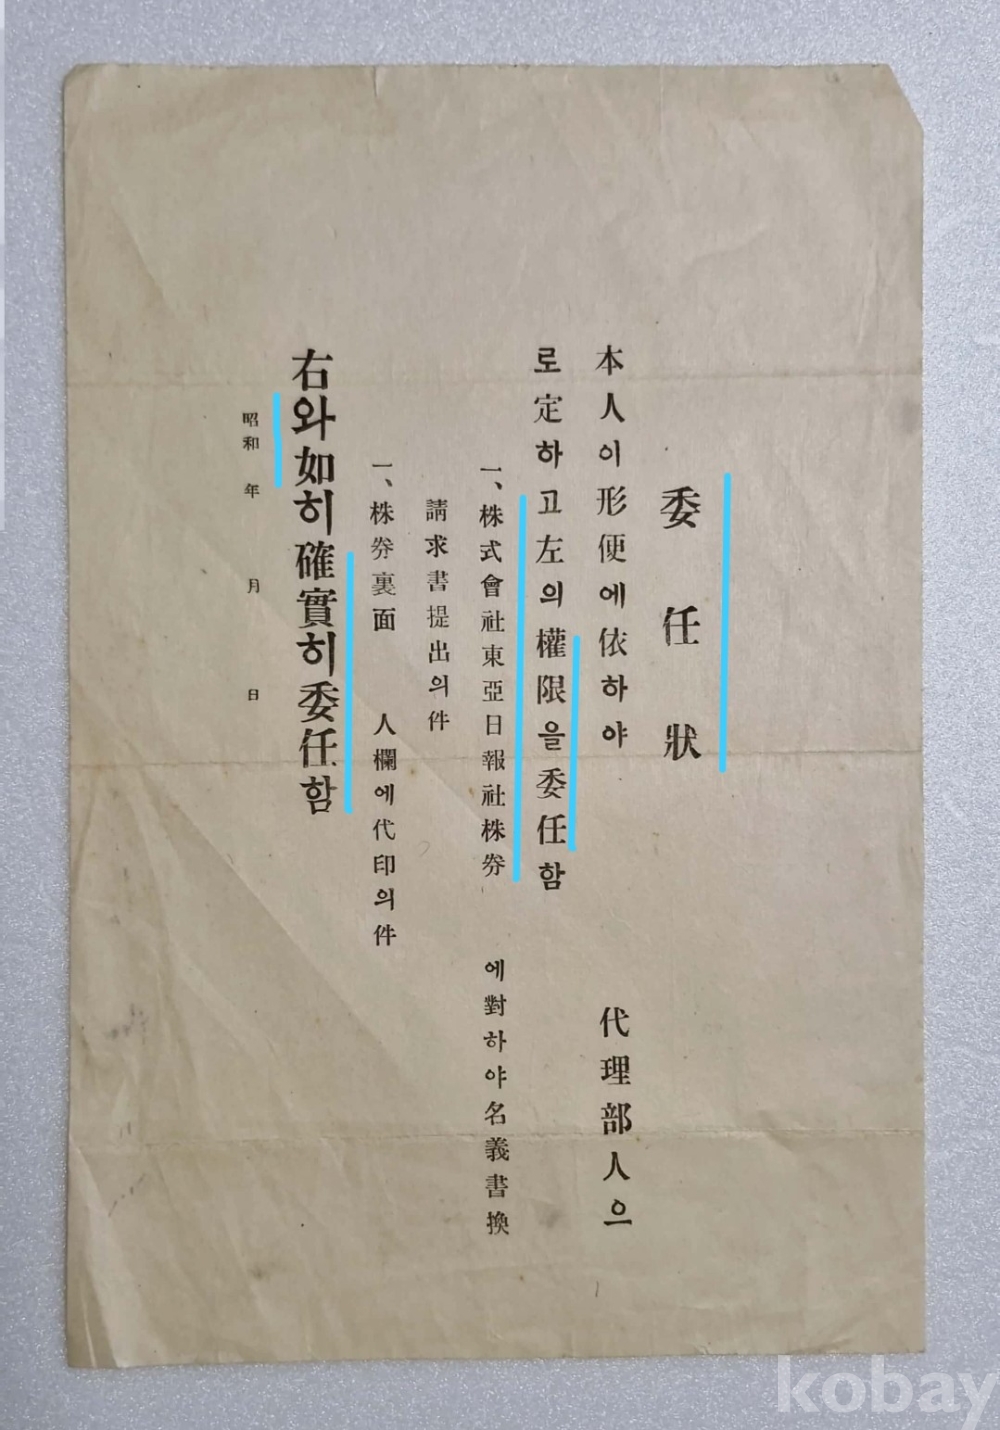 委任狀
本人이形便에依하야 代理部人으
로定하고左의權限을委任함
一、株式會社東亞日報社株券 에對하야名義書換
請求書提出의件
一、株券裏面 人欄에代印의件
右와如히確實히委任함
昭和 年 月 日
kobay